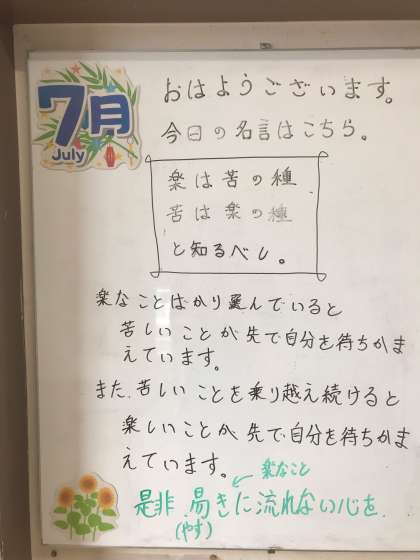 7月
July
おはようございます。
今日の名言はこちら。
楽は苦の種
苦は楽の種
と知るべし。
楽なことばかり選んでいると
苦しいことが先で自分を待ちかま
えています。
また、苦しいことを乗り越え続けると
楽しいことが先で自分を待ちかま
えています。
楽なこと
是非 易きに流れない心を
(やす)